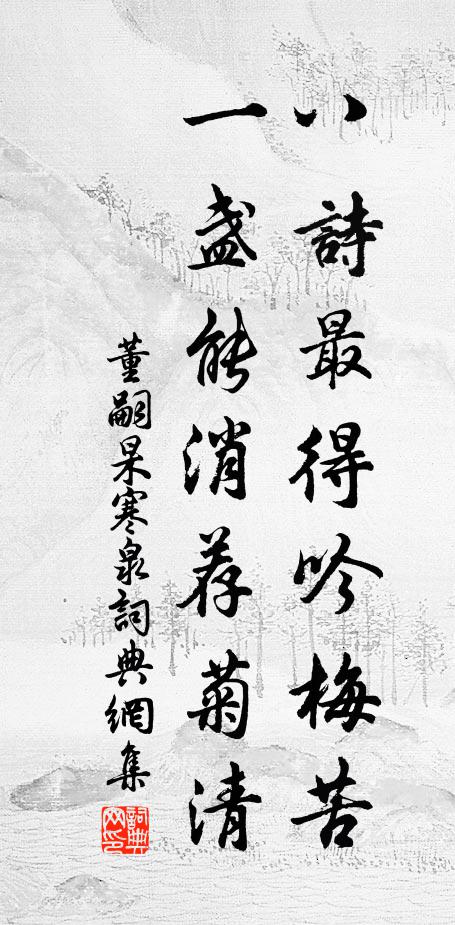 八詩最得吟梅苦
一盞能消荐菊清
董嗣杲寒泉詞典網集
詞典网印